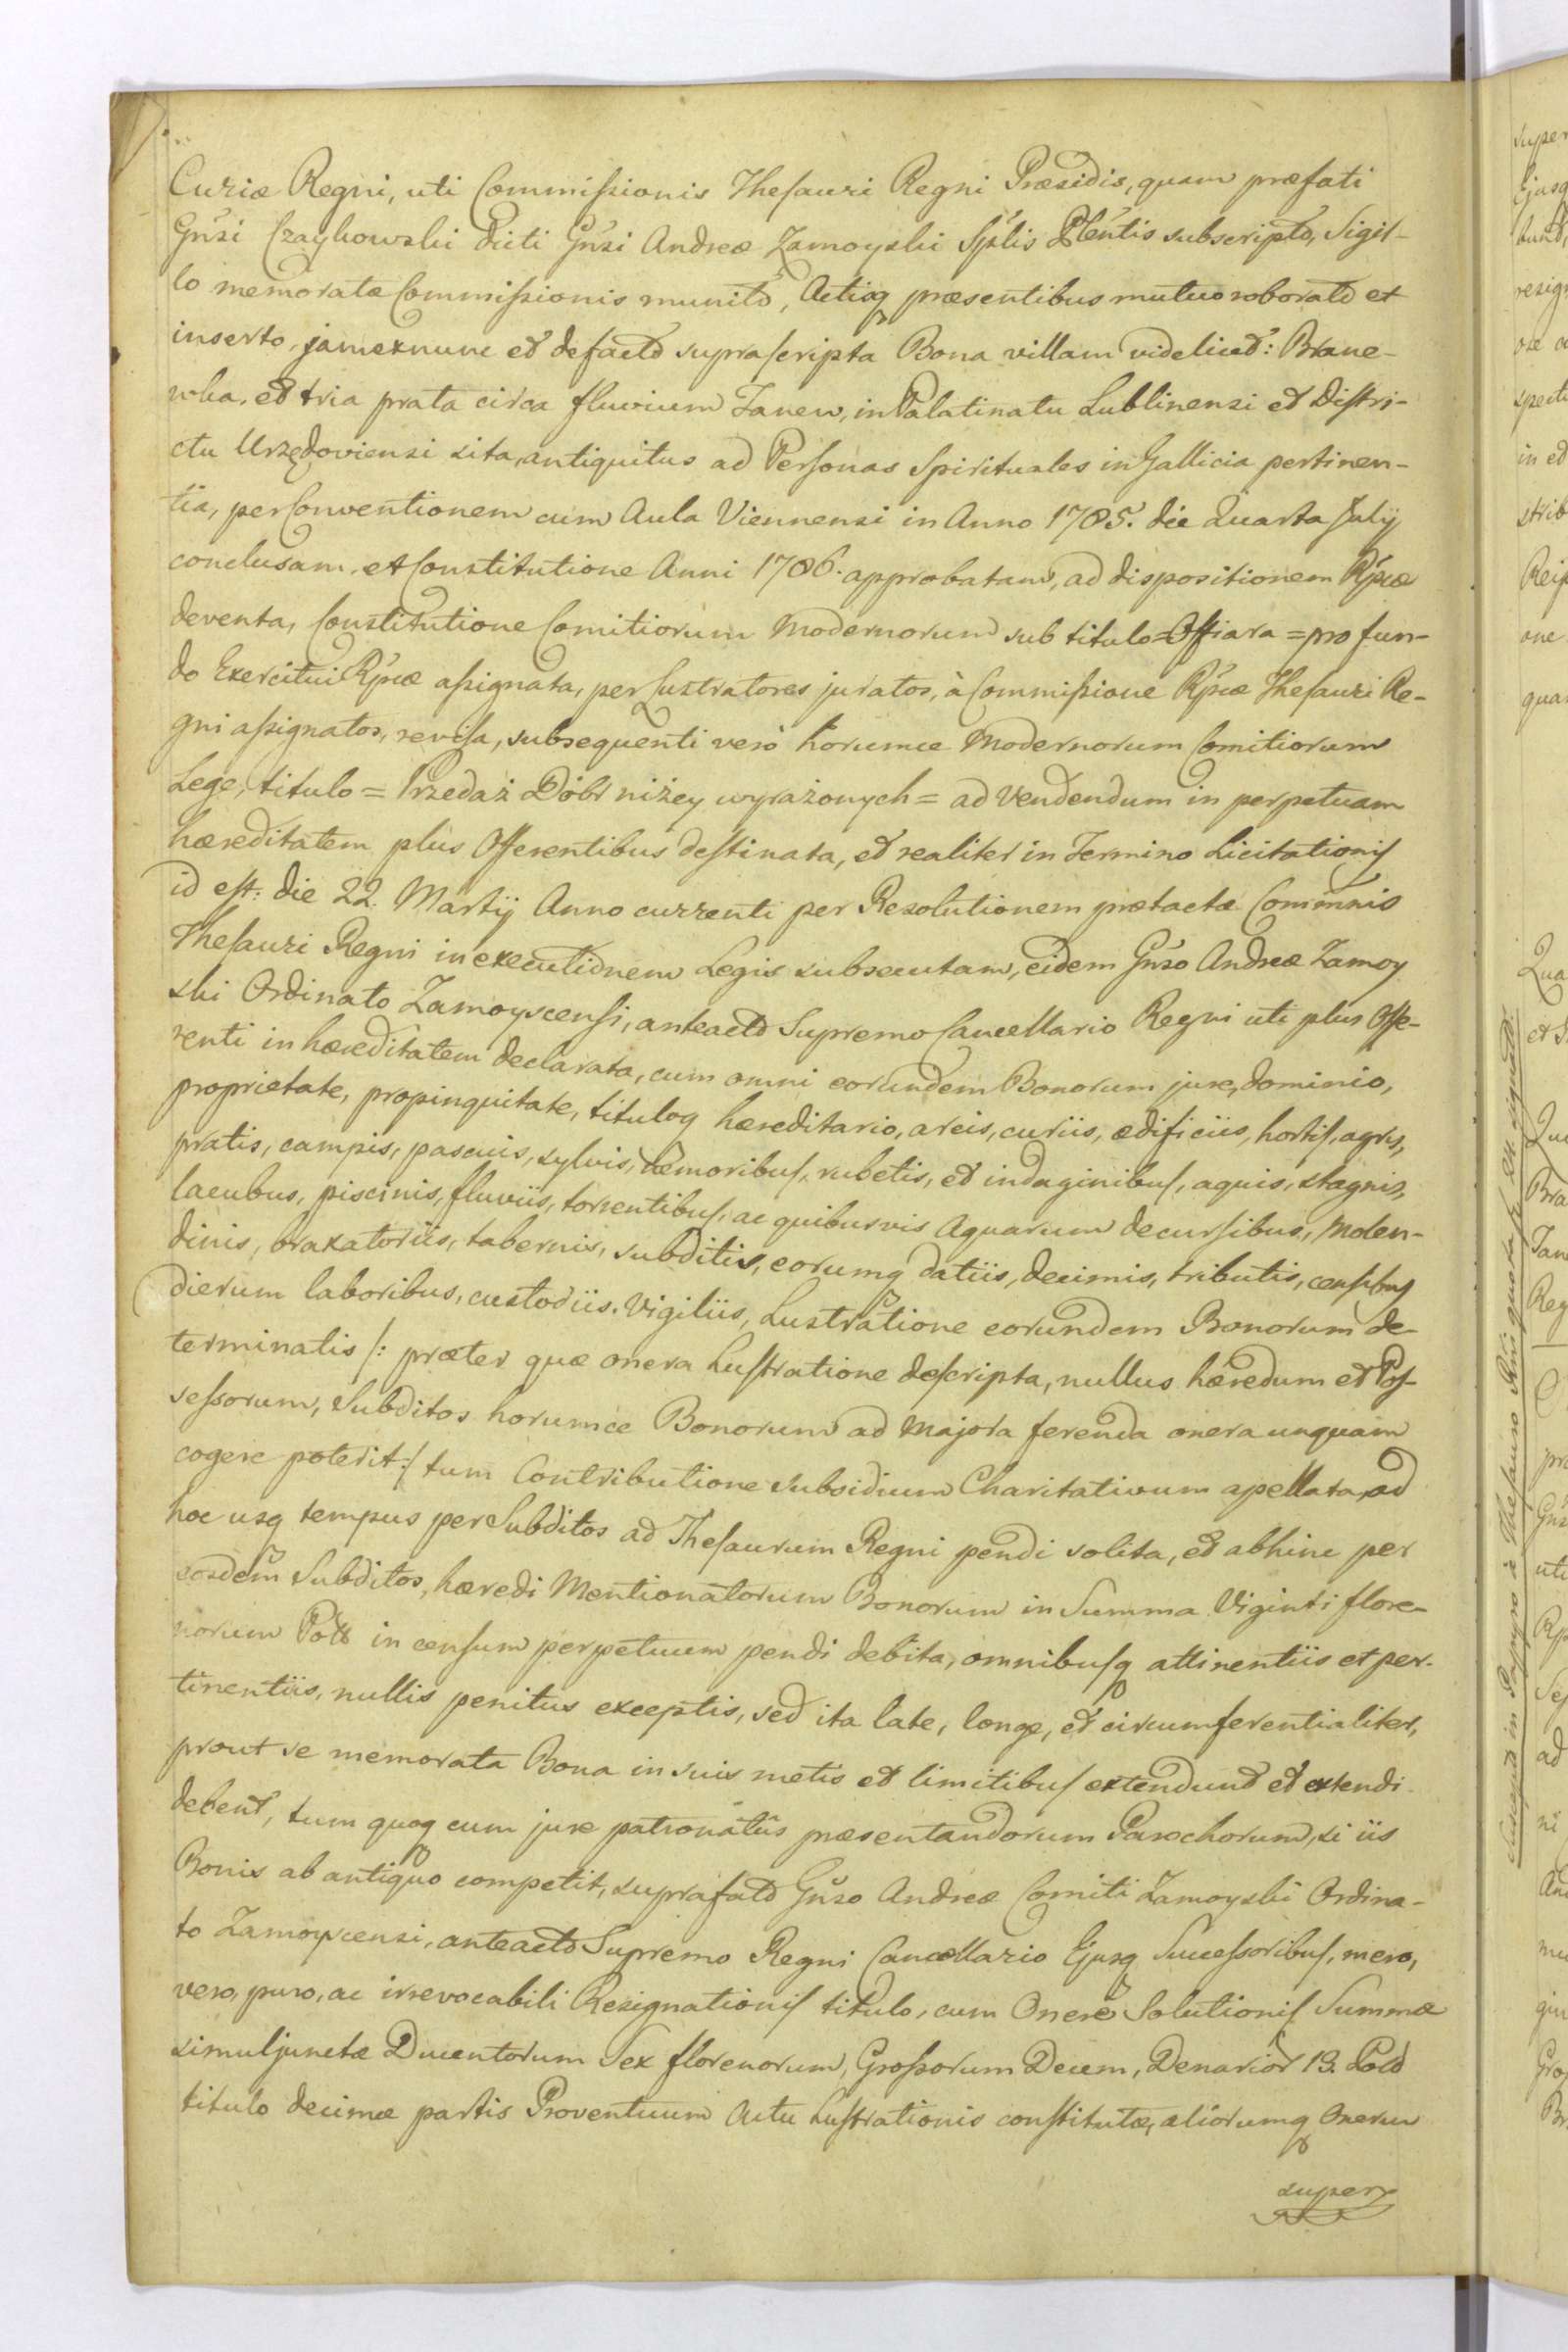 Curiæ Regni, uti Commissionis Thesauri Regni Præsidis, quam præfati
Gnsi Czaykowski dicti Gnsi Andreæ Zamoyski Splis Pltentis subscripto, Sigil-
lo memoratæ Commissionis munito, Actisq præsentibus mutuo roborato et
inserto, jamexnunc et defacto suprascripta Bona villam videlicet: Brane-
wka, et tria prata circa fluvium Tanew, in Palatinatu Lublinensi et Distri-
ctu Urzędoviensi sita, antiquitus ad Personas Spirituales in Gallicia pertinen-
tia, per Conventionem cum Aula Viennensi in Anno 1785. die Quarta Julij
conclusam, et Constitutione Anni 1786. approbatam, ad dispositionem Rpcæ
deventa, Constitutione Comitiorum Modernorum sub titulo = Offiara = pro fun-
do Exercitui Rpcæ assignata, per Lustratores juratos, à Commissione Rpcæ Thesauri Re-
gni assignatos, revisa, subsequenti verò horumce Modernorum Comitiorum
Lege, titulo = Przedaż Dóbr niżey wyrażonych = ad vendendum in perpetuam
hæreditatem plus Offerentibus destinata, et realiter in Termino Licitationis
id est: die 22. Martij Anno currenti per Resolutionem prætactæ Commnis
Thesauri Regni in executionem Legis subsecutam, eidem Gnso Andreæ Zamoy
ski Ordinato Zamoyscensi, anteacto Supremo Cancellario Regni uti plus Offe-
renti in hæreditatem declarata, cum omni eorundem Bonorum jure, dominio,
proprietate, propinquitate, tituloq hæreditario, areis, curiis, ædificiis, hortis, agris,
pratis, campis, pascuis, sylvis, nemoribus, rubetis, et indaginibus, aquis, stagnis,
lacubus, piscinis, fluviis, torrentibus, ac quibusvis Aquarum decursibus, Molen-
dinis, braxatoriis, tabernis, subditis, eorumq datiis, decimis, tributis, censibus
dierum laboribus, custodiis, vigiliis, Lustratione eorundem Bonorum de-
terminatis /: præter quæ onera Lustratione descripta, nullus hæredum et Pos-
sessorum, Subditos horumce Bonorum ad majora ferenda onera unquam
cogere poterit :/ tum Contributione subsidium Charitativum apellata, ad
hoc usq tempus per Subditos ad Thesaurum Regni pendi solita, et abhinc per
eosdem Subditos, hæredi Mentionatorum Bonorum in Summa Viginti flore-
norum Poll in censum perpetuum pendi debita, omnibusq attinentiis et per-
tinentiis, nullis penitus exceptis, sed ita late, longe, et circumferentialiter,
prout se memorata Bona in suis metis et limitibus extendunt et extendi
debent, tum quoq cum jure patronatûs præsentandorum Parochorum, si iis
Bonis ab antiquo competit, suprafato Gnso Andreæ Comiti Zamoyski Ordina-
to Zamoyscensi, anteacto Supremo Regni Cancellario Ejusq Successoribus, mero,
vero, puro, ac irrevocabili Resignationis titulo, cum Onere Solutionis Summæ
simuljunctæ Ducentorum Sex florenorum, Grossorum Decem, Denarior 13. Pold
titulo decimæ partis Proventuum Actu Lustrationis constitutæ, aliorumq Onerum
super